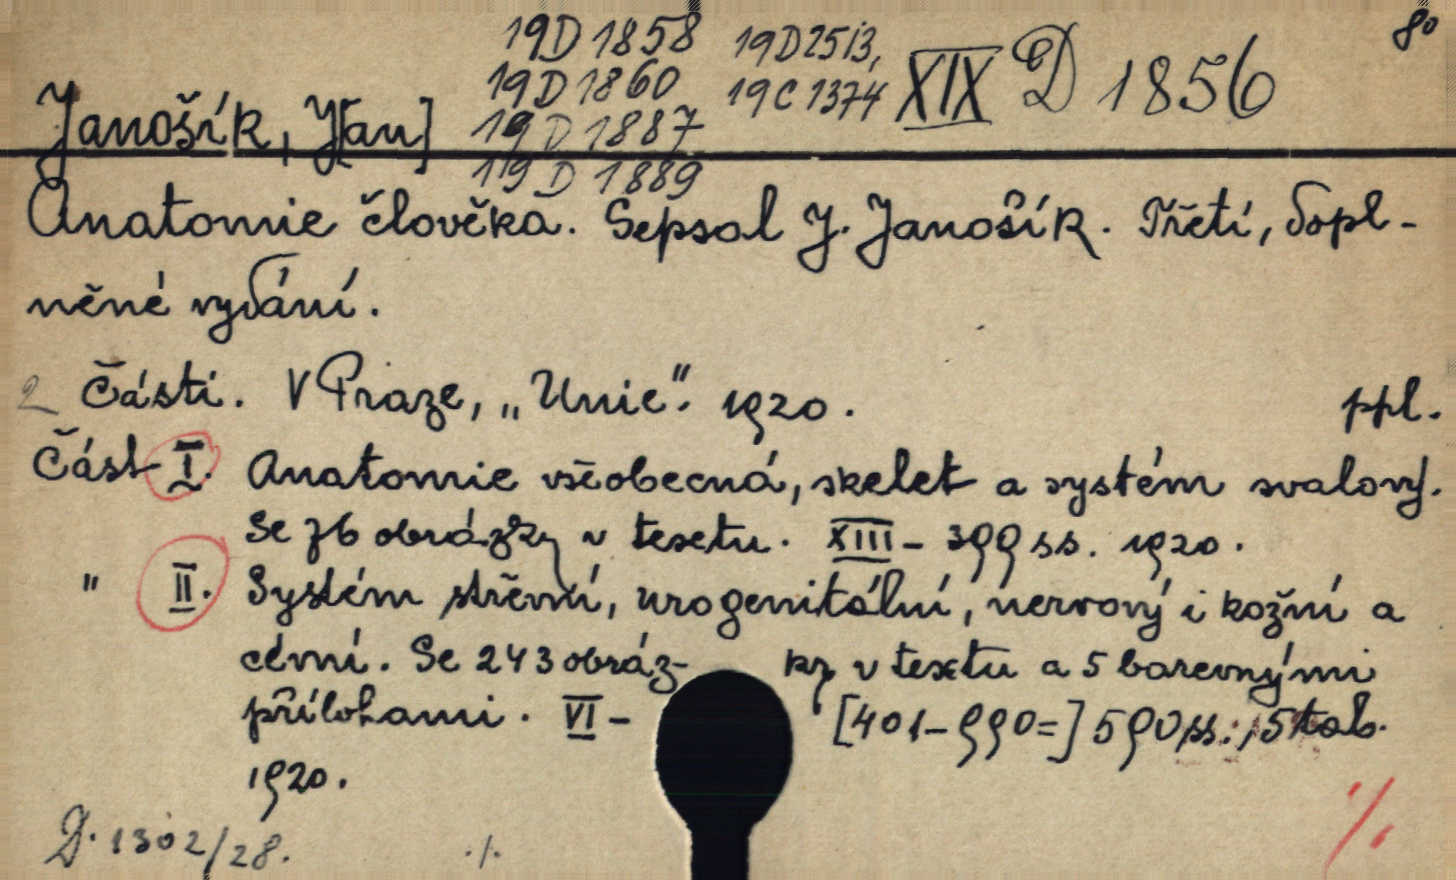 19D 1858 19D2513, XIX D 1856 8°
19D 1860 19C 1374
Janošík, J[an] 19D 1887
19D 1889
Anatomie člověka. Sepsal J. Janošík. Třetí, dopl-
něné vydání.
2 části. V Praze, „Unie". 1920. ppl.
Část I. Anatomie všeobecná, skelet a systém svalový.
Se 76 obrázky v textu. XIII - 399 ss. 1920.
" II. Systém střevní, urogenitální, nervový i kožní a
cévní. Se 243 obráz- ky v textu a 5 barevnými
přílohami. VI - [401-990=] 590 ss., 5 tab.
1920.
D. 1302/28. ./. %